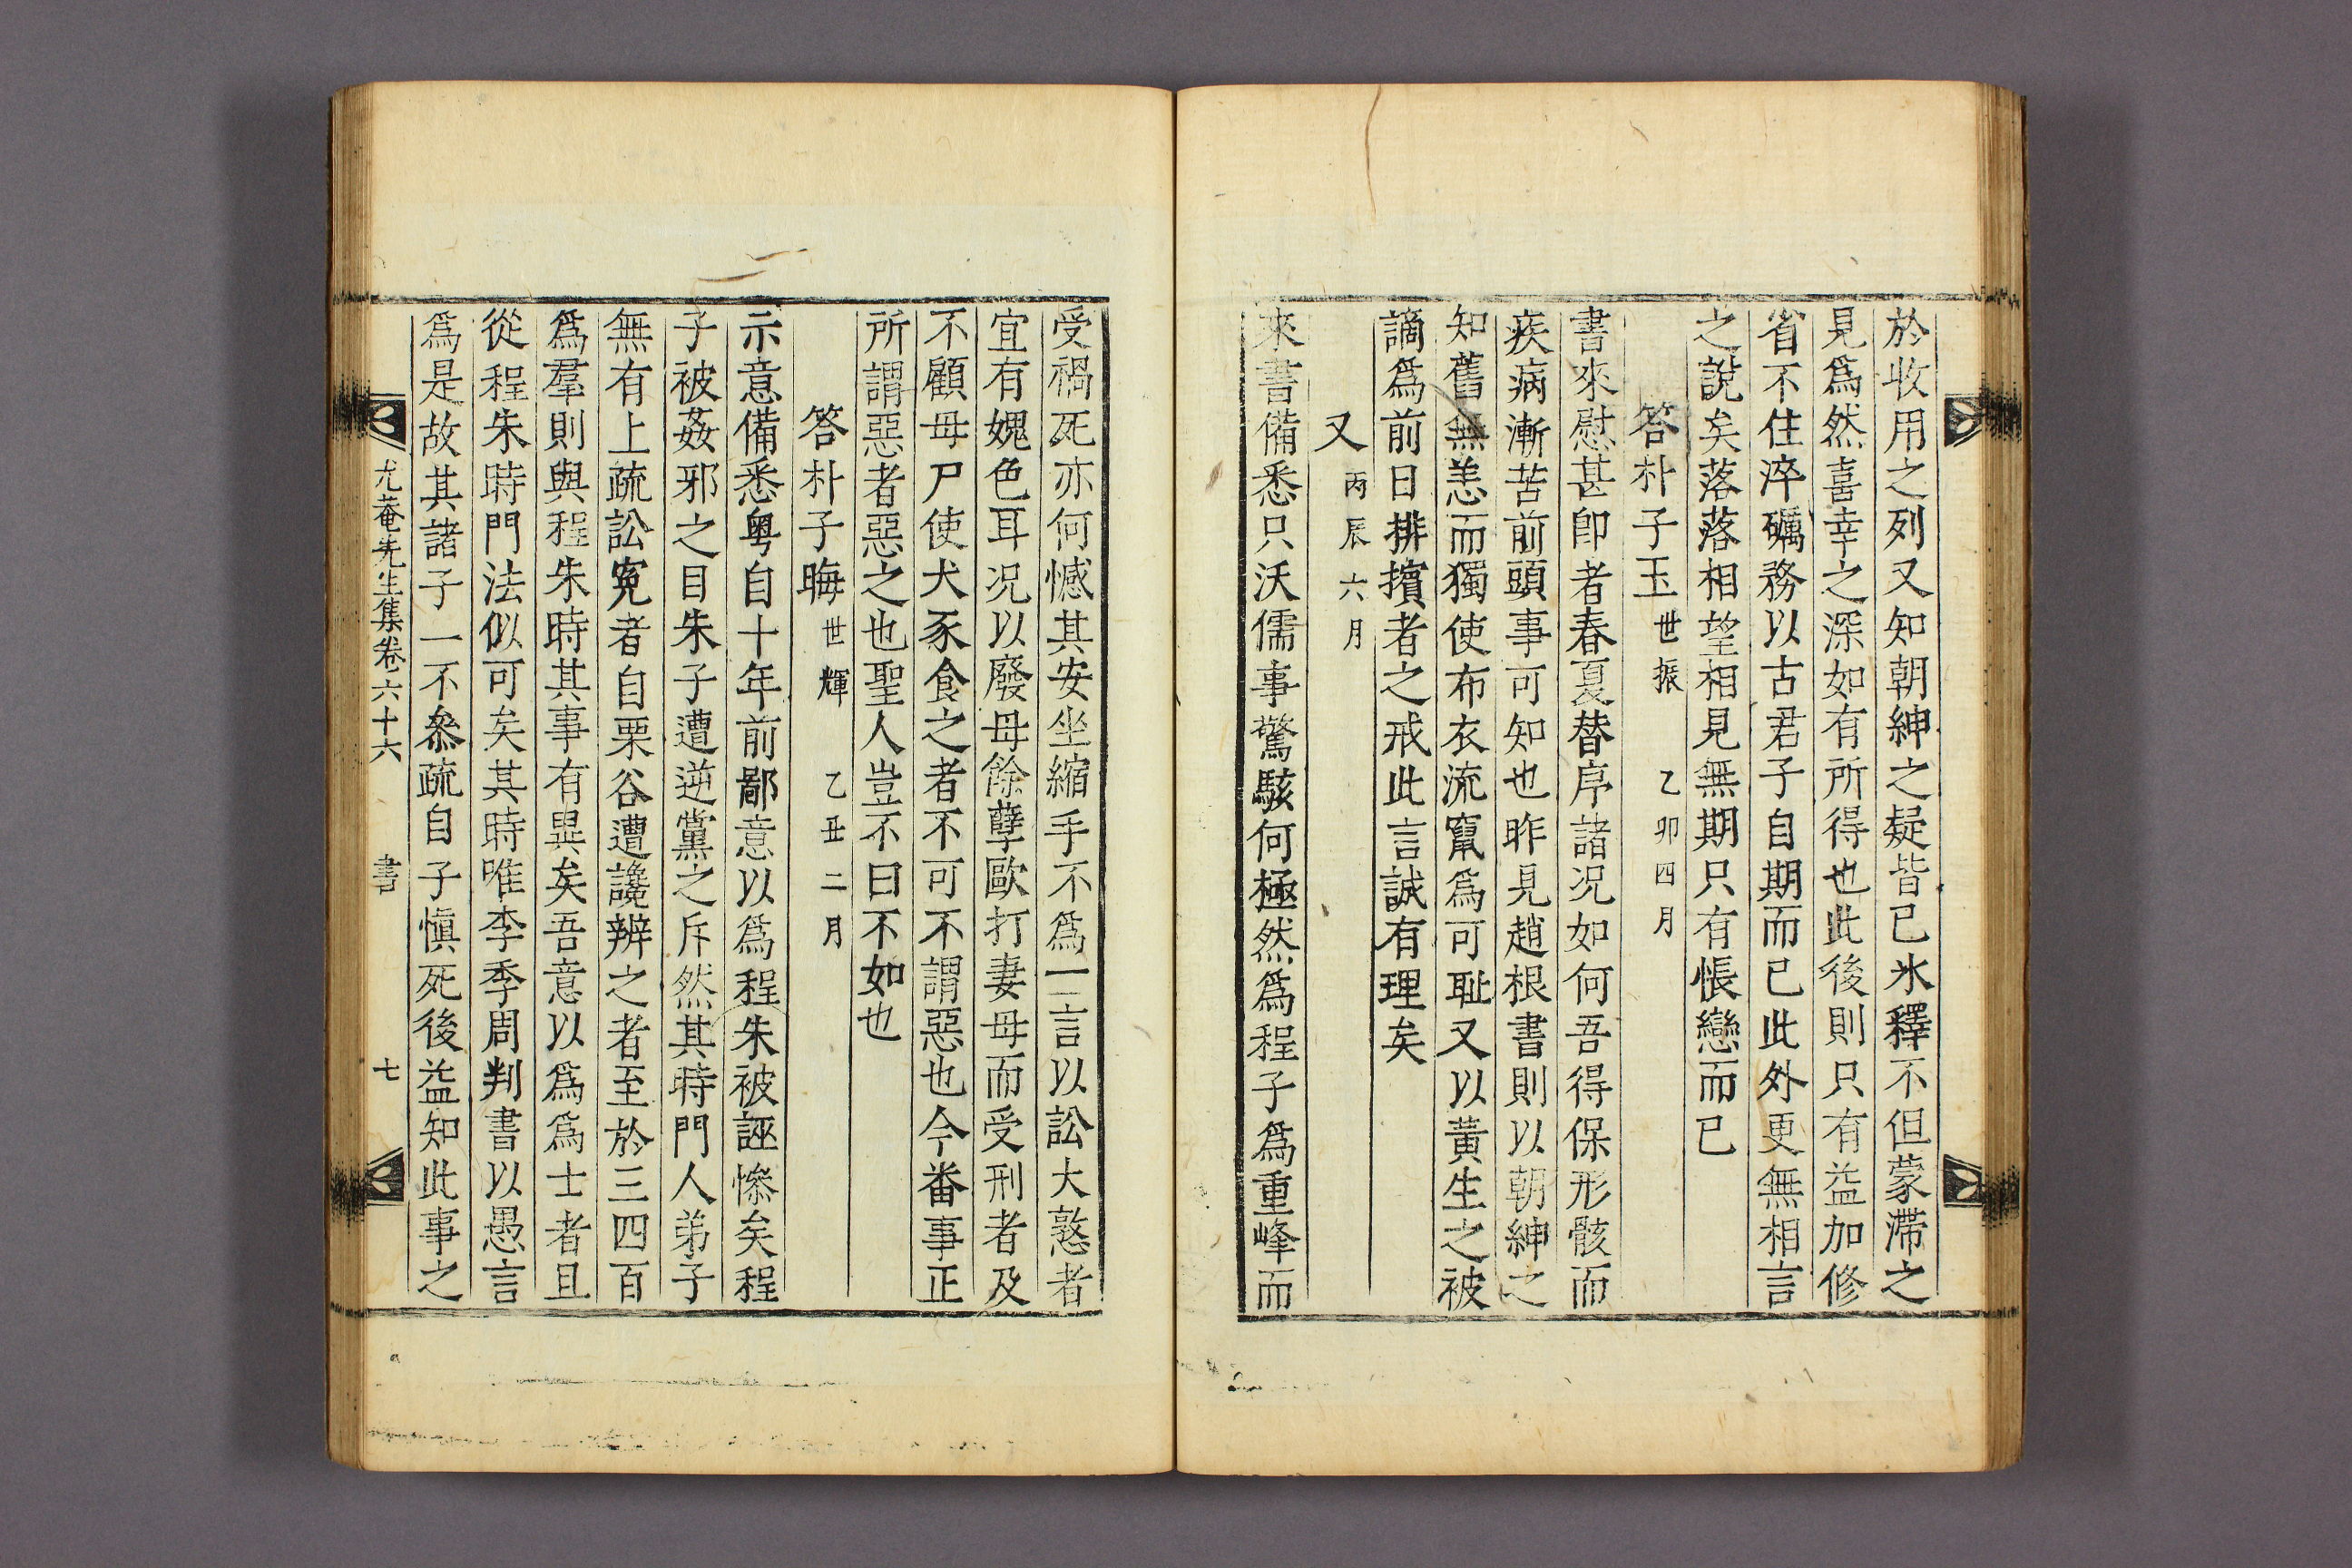 於收用之列又知朝紳之疑皆已氷釋不但蒙滯之
見爲然喜幸之深如有所得也此後則只有益加修
省不住淬礪務以古君子自期而已此外更無相言
之說矣落落相望相見無期只有悵戀而已
答朴子玉世振 乙卯四月
書來慰甚卽者春夏替序諸况如何吾得保形骸而
疾病漸苦前頭事可知也昨見趙根書則以朝紳之
知舊無恙而獨使布衣流竄爲可耻又以黃生之被
謫爲前日排擯者之戒此言誠有理矣
又丙辰六月
來書備悉只沃儒事驚駭何極然爲程子爲重峰而
受禍死亦何憾其安坐縮手不爲一言以訟大憝者
宜有媿色耳况以廢母餘孽歐打妻母而受刑者及
不顧母尸使犬豕食之者不可不謂惡也今番事正
所謂惡者惡之也聖人豈不曰不如也
答朴子晦世輝 乙丑二月
示意備悉粤自十年前鄙意以爲程朱被誣慘矣程
子被姦邪之目朱子遭逆黨之斥然其時門人弟子
無有上疏訟寃者自栗谷遭讒辨之者至於三四百
爲羣則與程朱時其事有異矣吾意以爲爲士者且
從程朱時門法似可矣其時唯李季周判書以愚言
爲是故其諸子一不叅疏自子愼死後益知此事之
尤菴先生集卷六十六 書 七